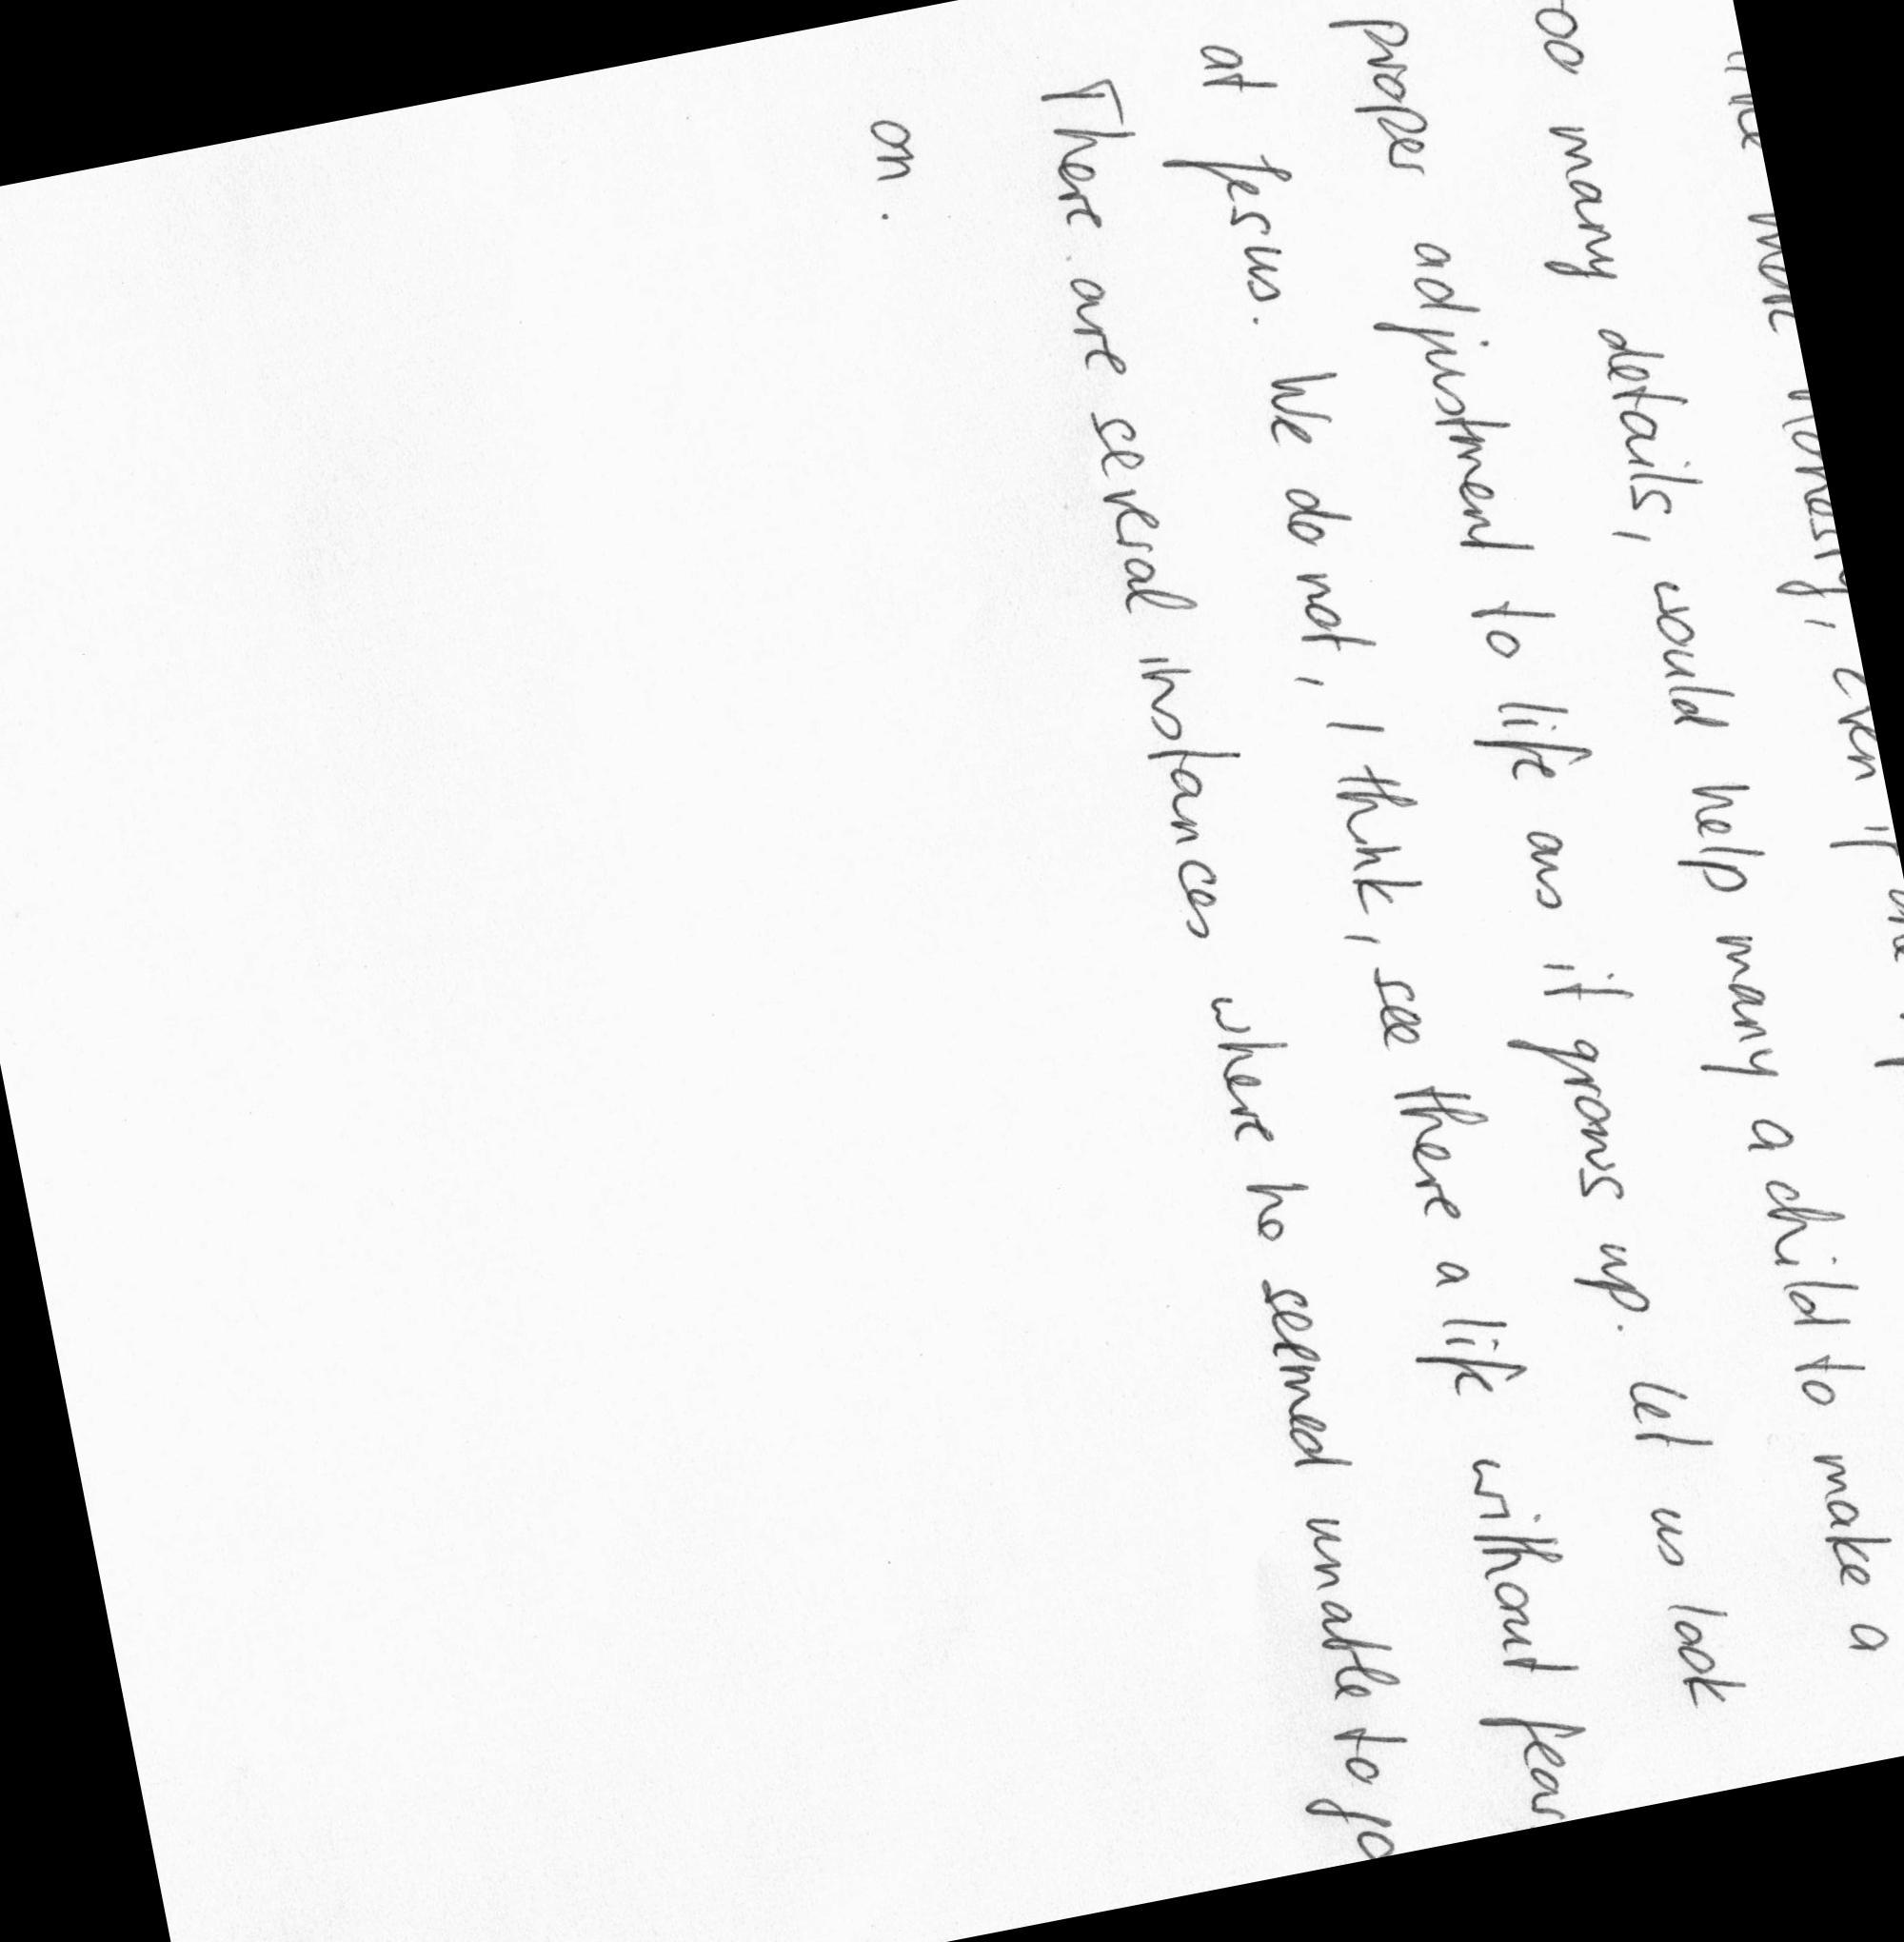 honesty, even if
too many details, would help many a child to make a
proper adjustment to life as it grows up. Let us look
at Jesus. We do not, I think, see there a life without fear
There are several instances where he seemed unable to go
on.